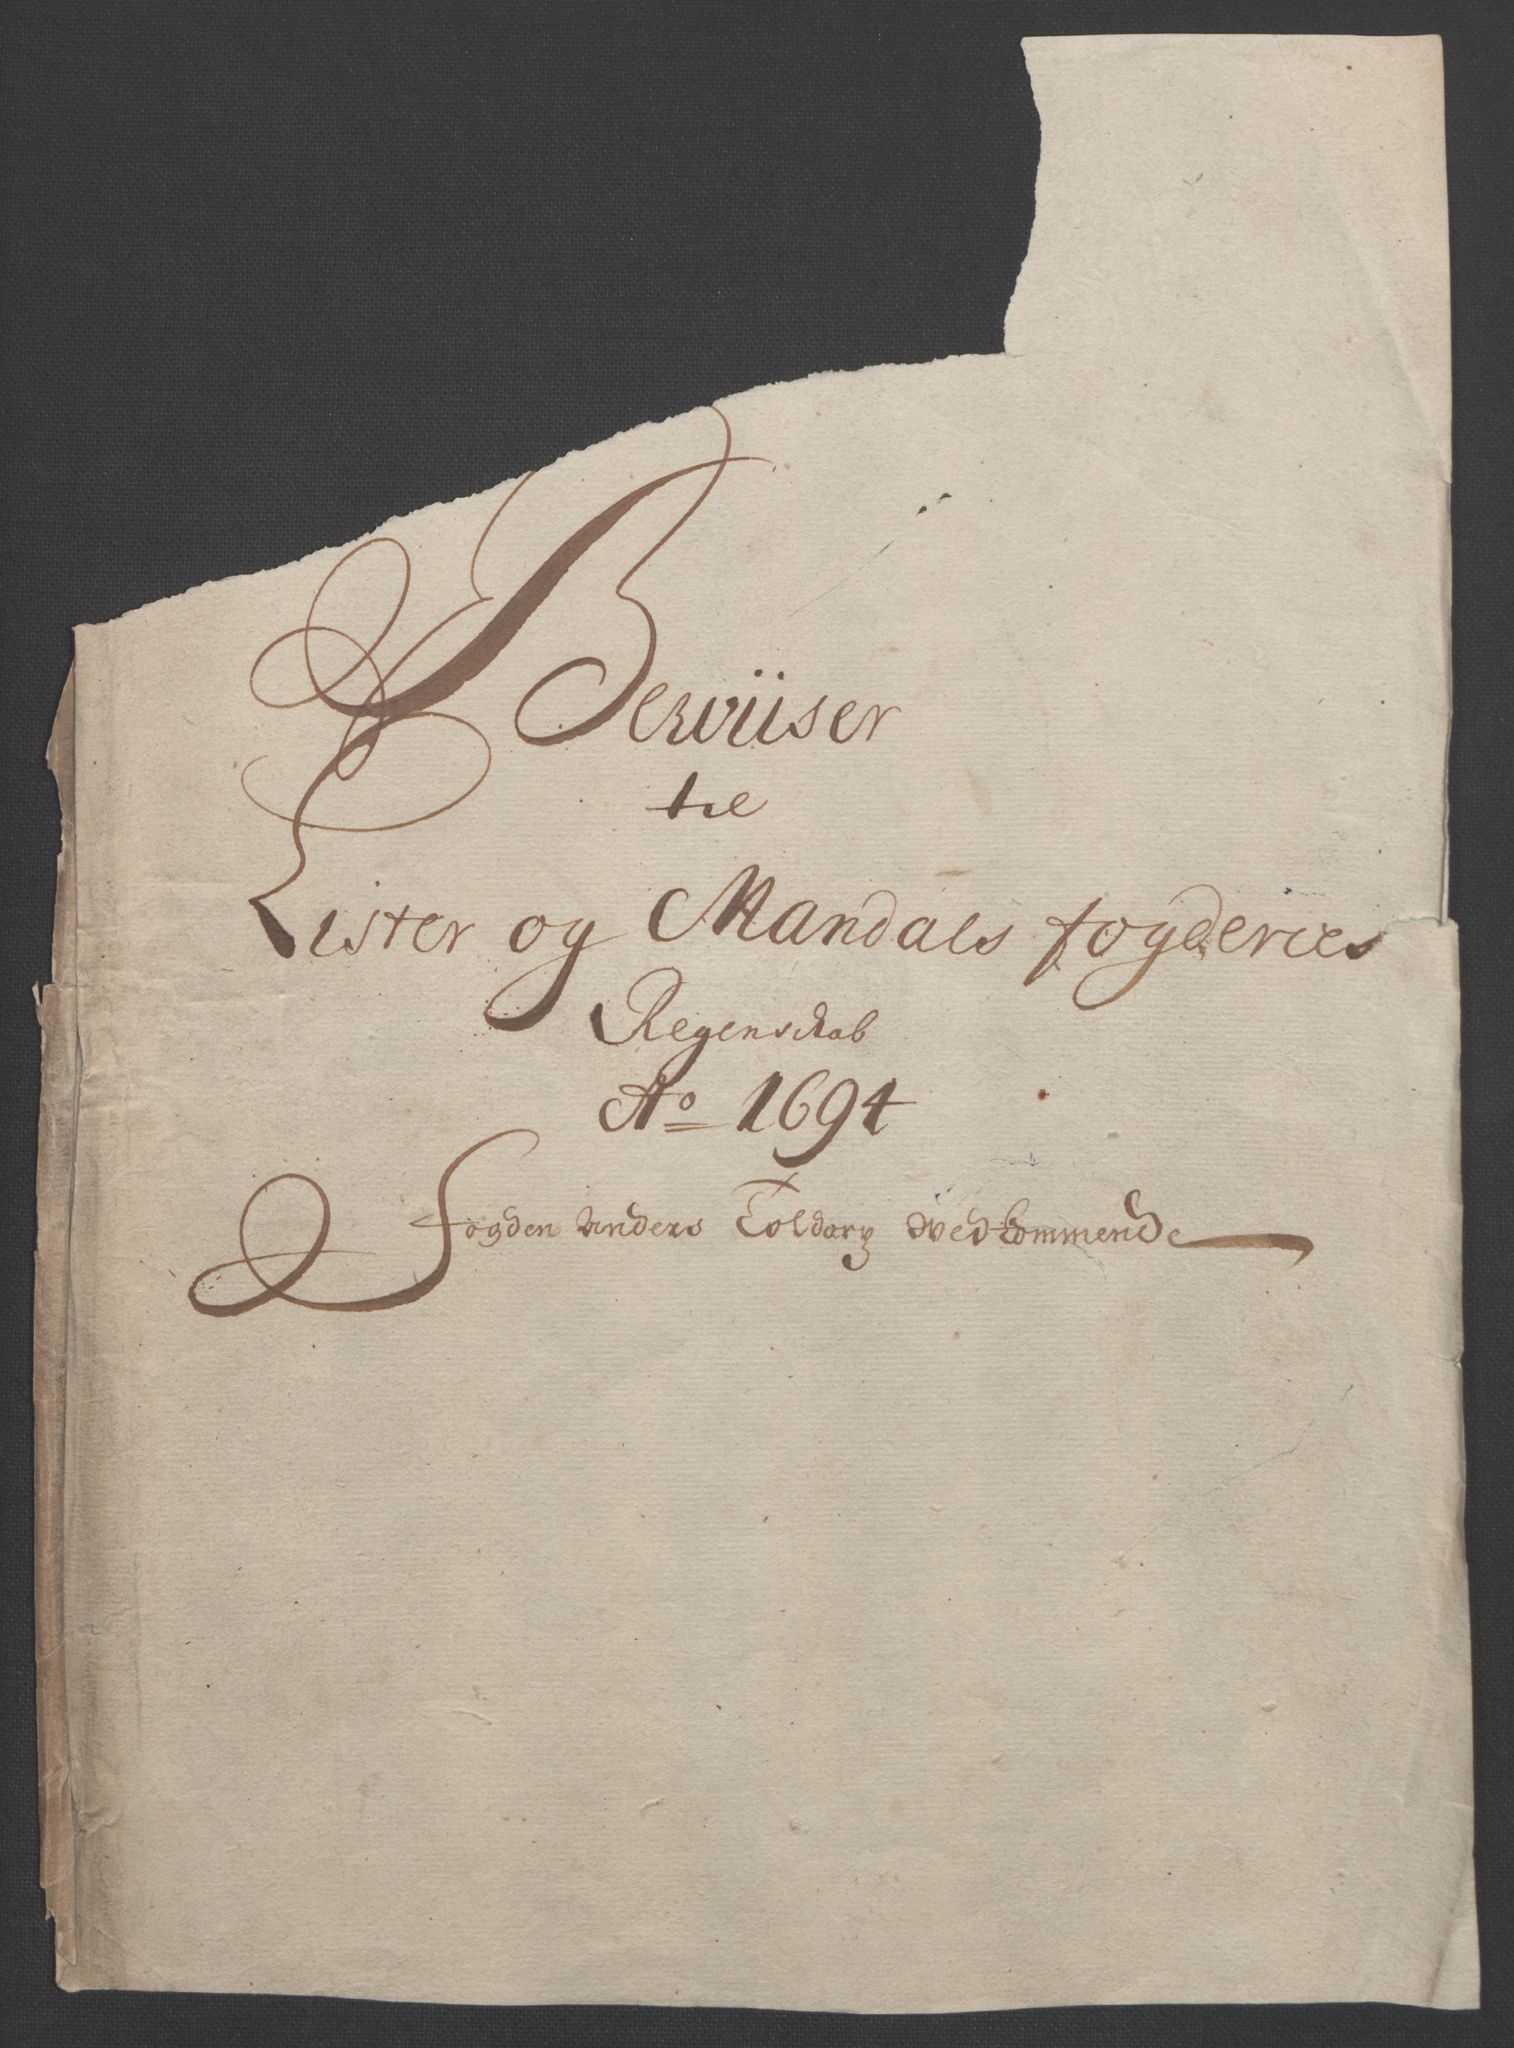 Bewiiser
til
Lister og Mandals fogderies
Regenskab
Ao 1694
fogden Anders Toldorg vedkommende